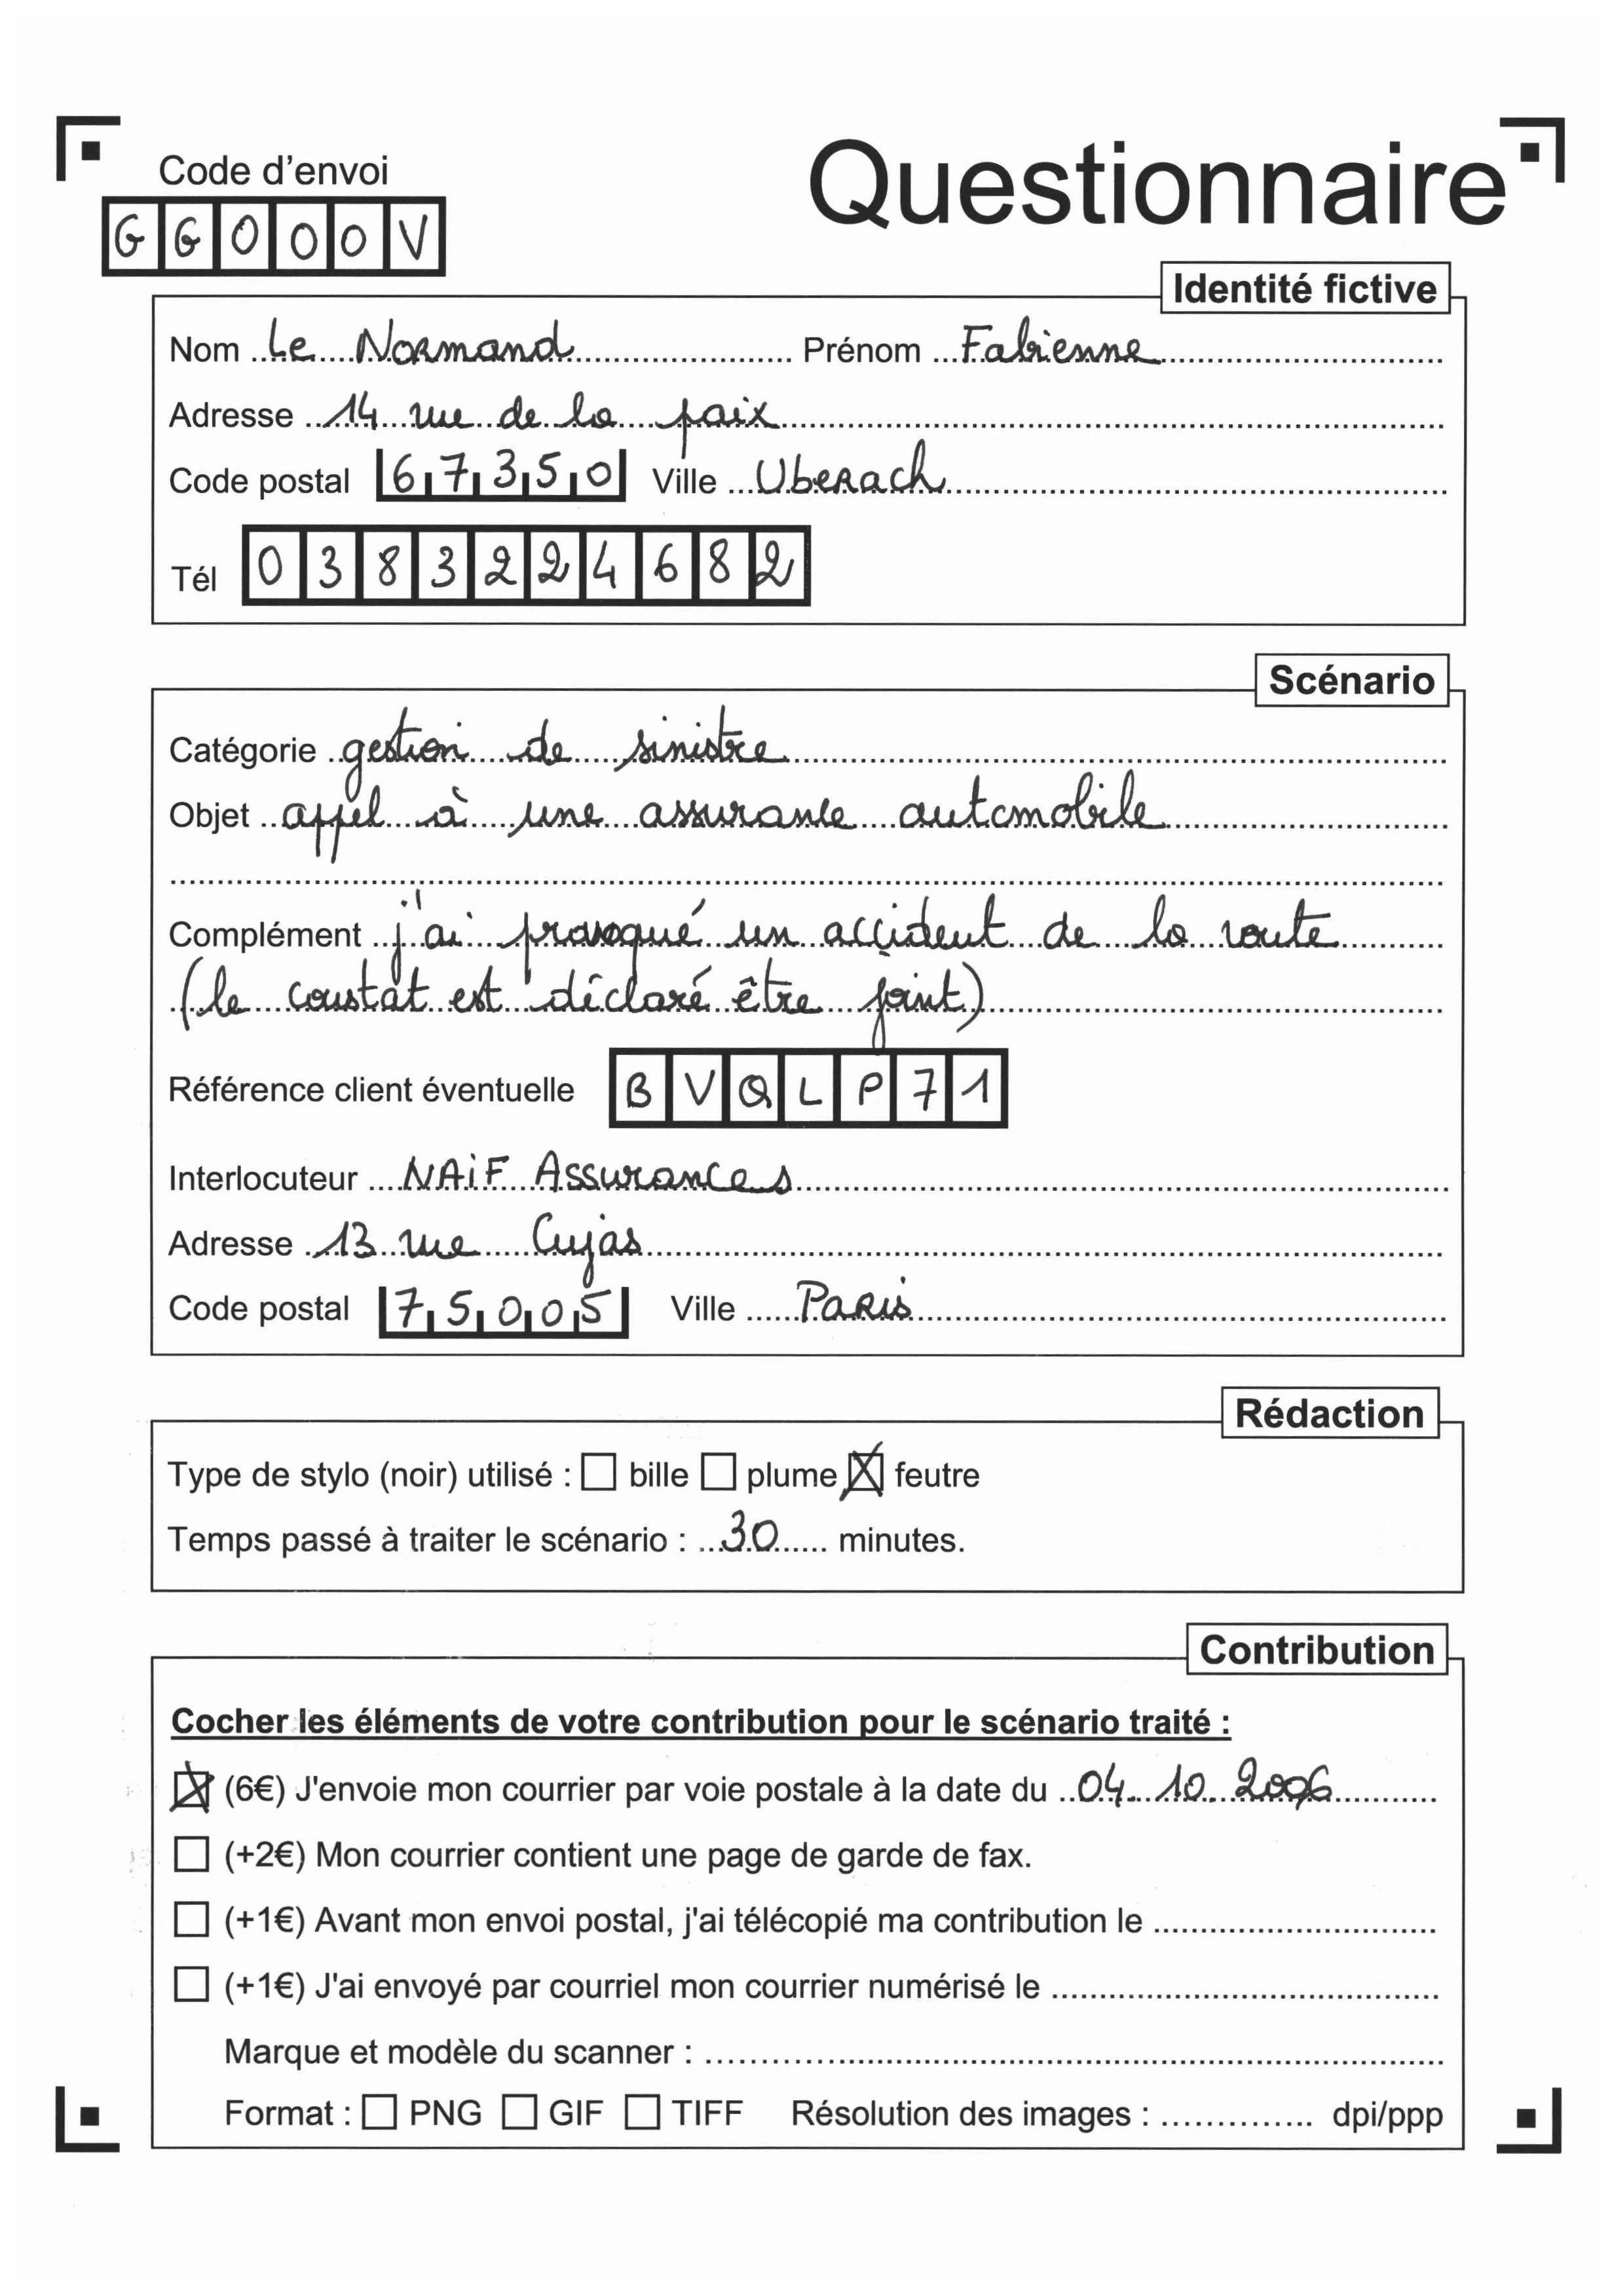 Code d'envoi
Questionnaire
GG000V
Identité fictive
Nom Le Normand Prénom Fabienne
Adresse 14 rue de la paix
Code postal 67350 Ville Uberach
Tél 0383224682
Scénario
Catégorie gestion de sinistre
Objet appel à une assurance automobile
Complément j'ai provoqué un accident de la route
(le constat est déclaré être joint)
Référence client éventuelle BVQLP71
Interlocuteur NAiF Assurances
Adresse 13 rue Cujas
Code postal 75005 Ville Paris
Rédaction
Type de stylo (noir) utilisé : ☐ bille ☐ plume ☒ feutre
Temps passé à traiter le scénario : 30 minutes.
Contribution
Cocher les éléments de votre contribution pour le scénario traité :
☒ (6€) J'envoie mon courrier par voie postale à la date du 04.10.2006
☐ (+2€) Mon courrier contient une page de garde de fax.
☐ (+1€) Avant mon envoi postal, j'ai télécopié ma contribution le
☐ (+1€) J'ai envoyé par courriel mon courrier numérisé le
Marque et modèle du scanner :
Format : ☐ PNG ☐ GIF ☐ TIFF Résolution des images : dpi/ppp